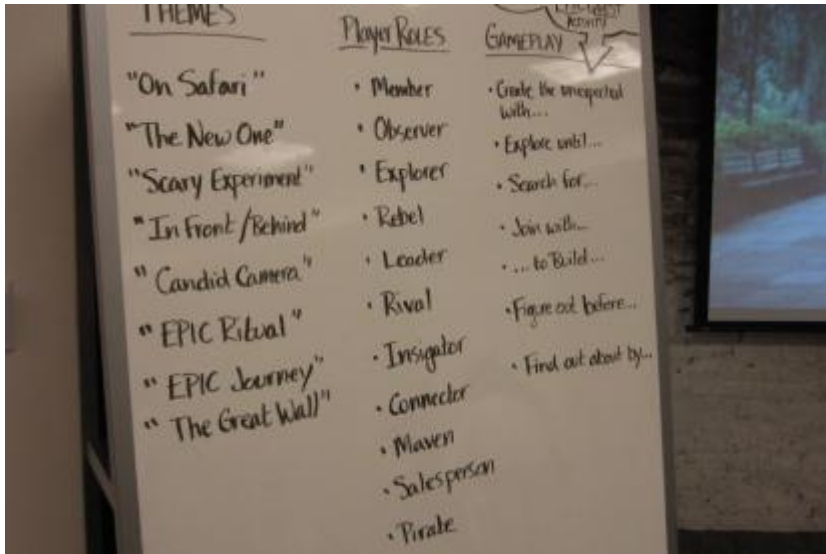 THEMES
"On Safari"
"The New One"
"Scary Experiment"
"In Front/Behind"
"Candid Camera"
"EPIC Ritual"
"EPIC Journey"
"The Great Wall"
Player ROLES
• Member
• Observer
• Explorer
• Rebel
• Leader
• Rival
• Insigator
• Connector
• Maven
• Salesperson
• Pirate
GAMEPLAY
• Create the unexpected
with...
• Explore until...
• Search for...
• Join with...
• ... to Build...
• Figure out before...
• Find out about by...